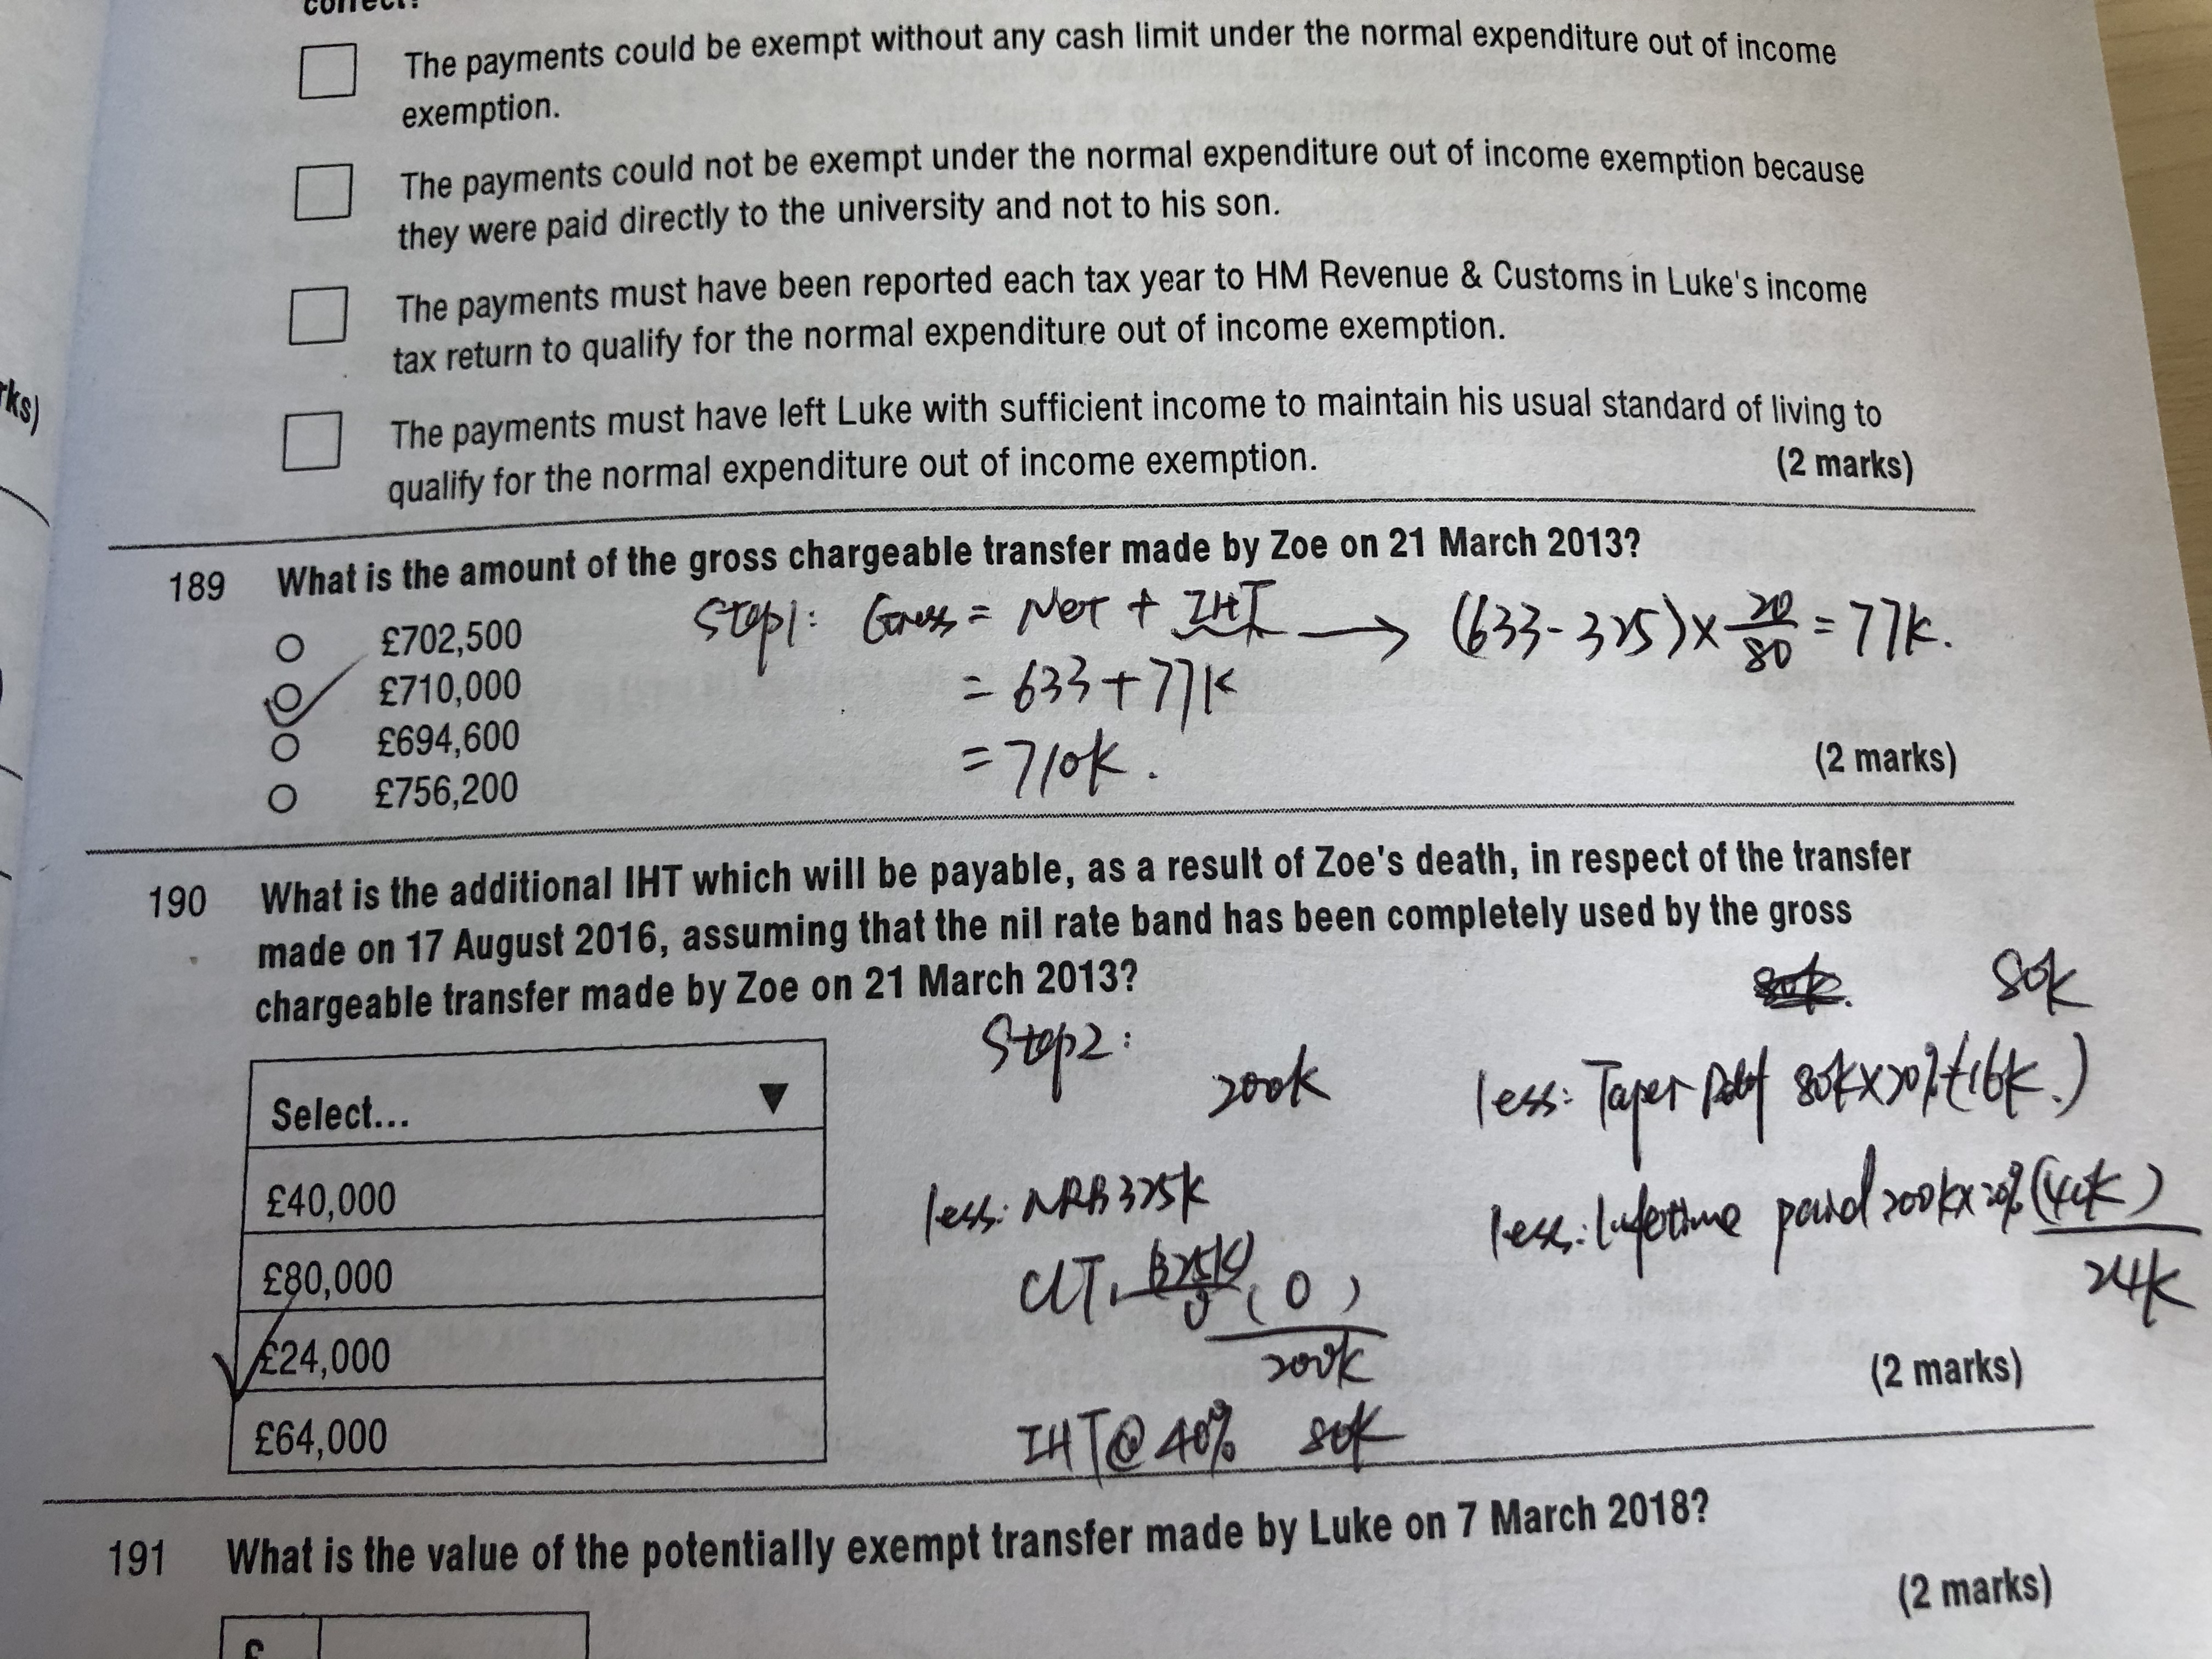 correct?
The payments could be exempt without any cash limit under the normal expenditure out of income
exemption.
The payments could not be exempt under the normal expenditure out of income exemption because
they were paid directly to the university and not to his son.
The payments must have been reported each tax year to HM Revenue & Customs in Luke's income
tax return to qualify for the normal expenditure out of income exemption.
rks)
The payments must have left Luke with sufficient income to maintain his usual standard of living to
qualify for the normal expenditure out of income exemption.
(2 marks)
189 What is the amount of the gross chargeable transfer made by Zoe on 21 March 2013?
£702,500
£710,000
£694,600
£756,200
Step1: Gross = Net + IHT → (633-325)× 20/80 = 77k.
= 633+77k
= 710k.
(2 marks)
190 What is the additional IHT which will be payable, as a result of Zoe's death, in respect of the transfer
made on 17 August 2016, assuming that the nil rate band has been completely used by the gross
chargeable transfer made by Zoe on 21 March 2013?
Select... ▼
£40,000
£80,000
£24,000
£64,000
Step2:
200k
less: NRB 325k
CLT (325k)
0 (0)
200k
IHT@40% 80k
80k
80k
less: Taper 80k×20% (16k.)
less: lifetime paid 200k×20% (40k)
24k
(2 marks)
191 What is the value of the potentially exempt transfer made by Luke on 7 March 2018?
(2 marks)
£